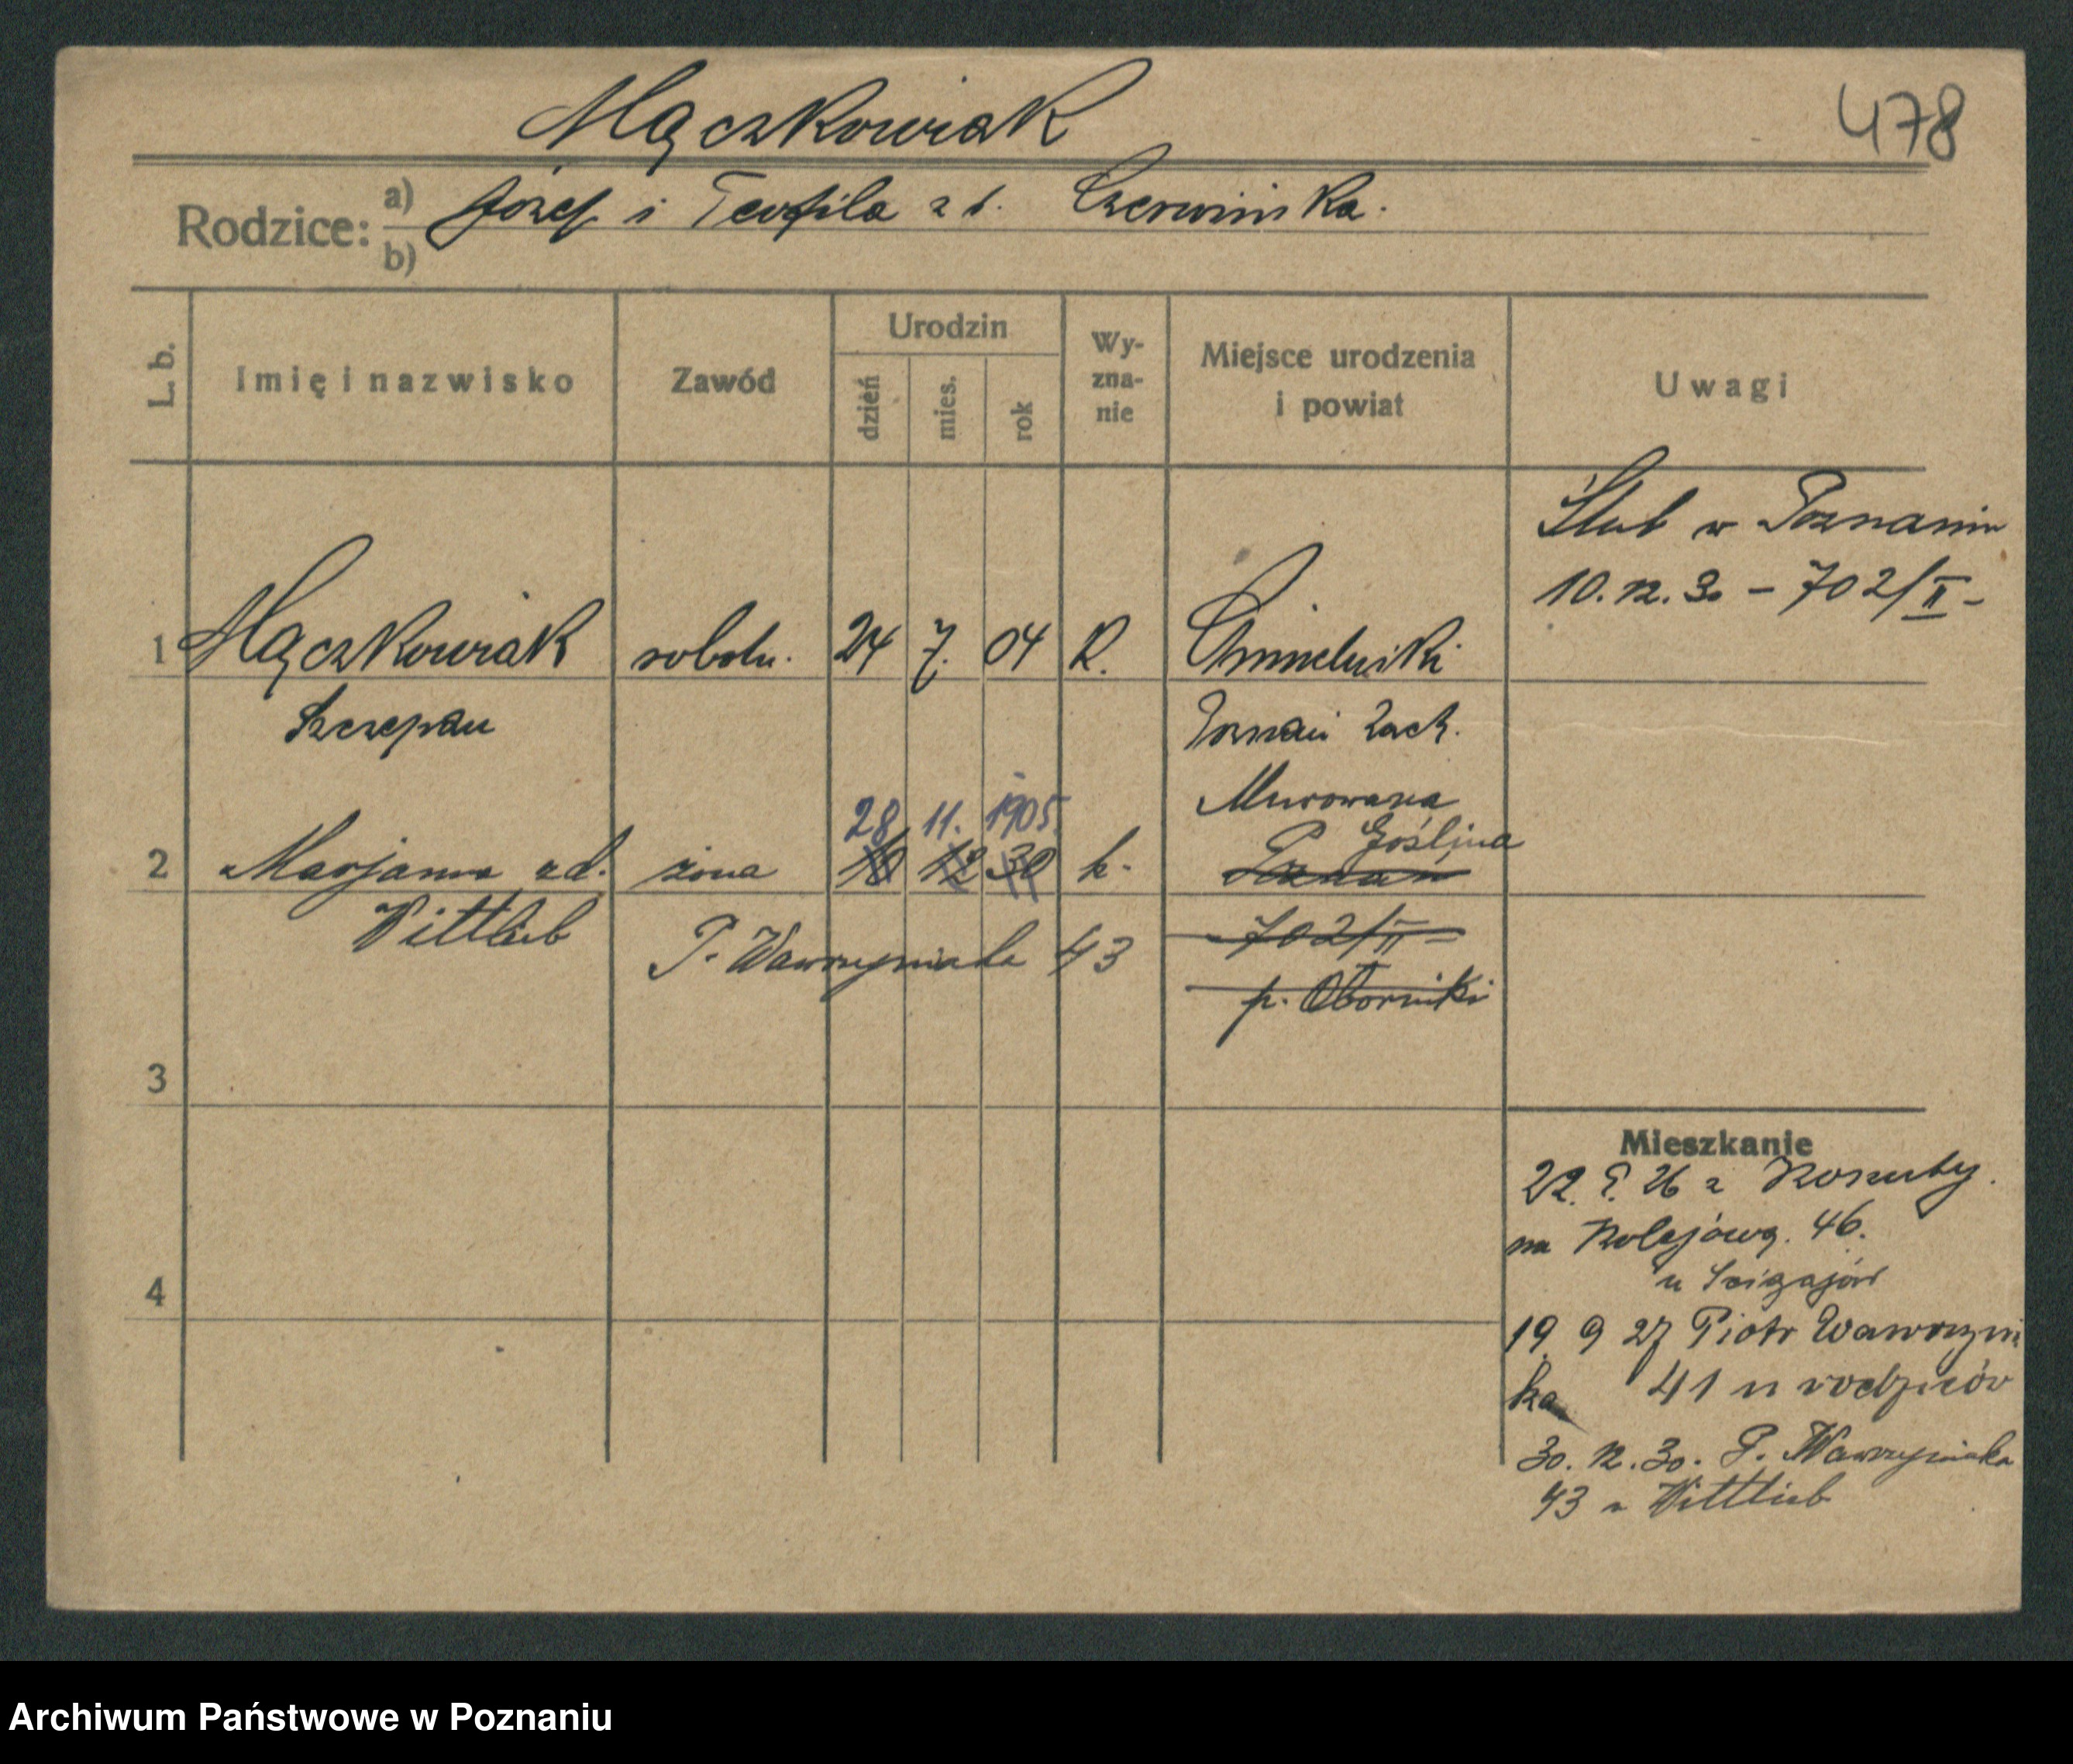 Mączkowiak
478
Rodzice:
a) Józef i Teofila z d. Czerwińska.
b)
L. b.
Imię i nazwisko
Zawód
Urodzin
dzień
mies.
rok
Wy-
zna-
nie
Miejsce urodzenia
i powiat
Uwagi
Ślub w Poznaniu
10.12.30 – 702/II –
1 Mączkowiak robotn. 24 7. 04 R. Chmielniki
Szczepan Poznań Zach.
28 11. 1905. Murowana
Goślina
2 Marjanna zd. żona 10 12 30 k. Poznań
Wittlieb
702/II –
P. Wawrzyniaka 43
p. Oborniki
3
4
Mieszkanie
22. 26 z
na Kolejową. 46.
u
19 9 27 Piotr Wawrzyni
ka 41 u rodziców
30. 12. 30. P. Wawrzyniaka
43 u Wittlieb
Archiwum Państwowe w Poznaniu